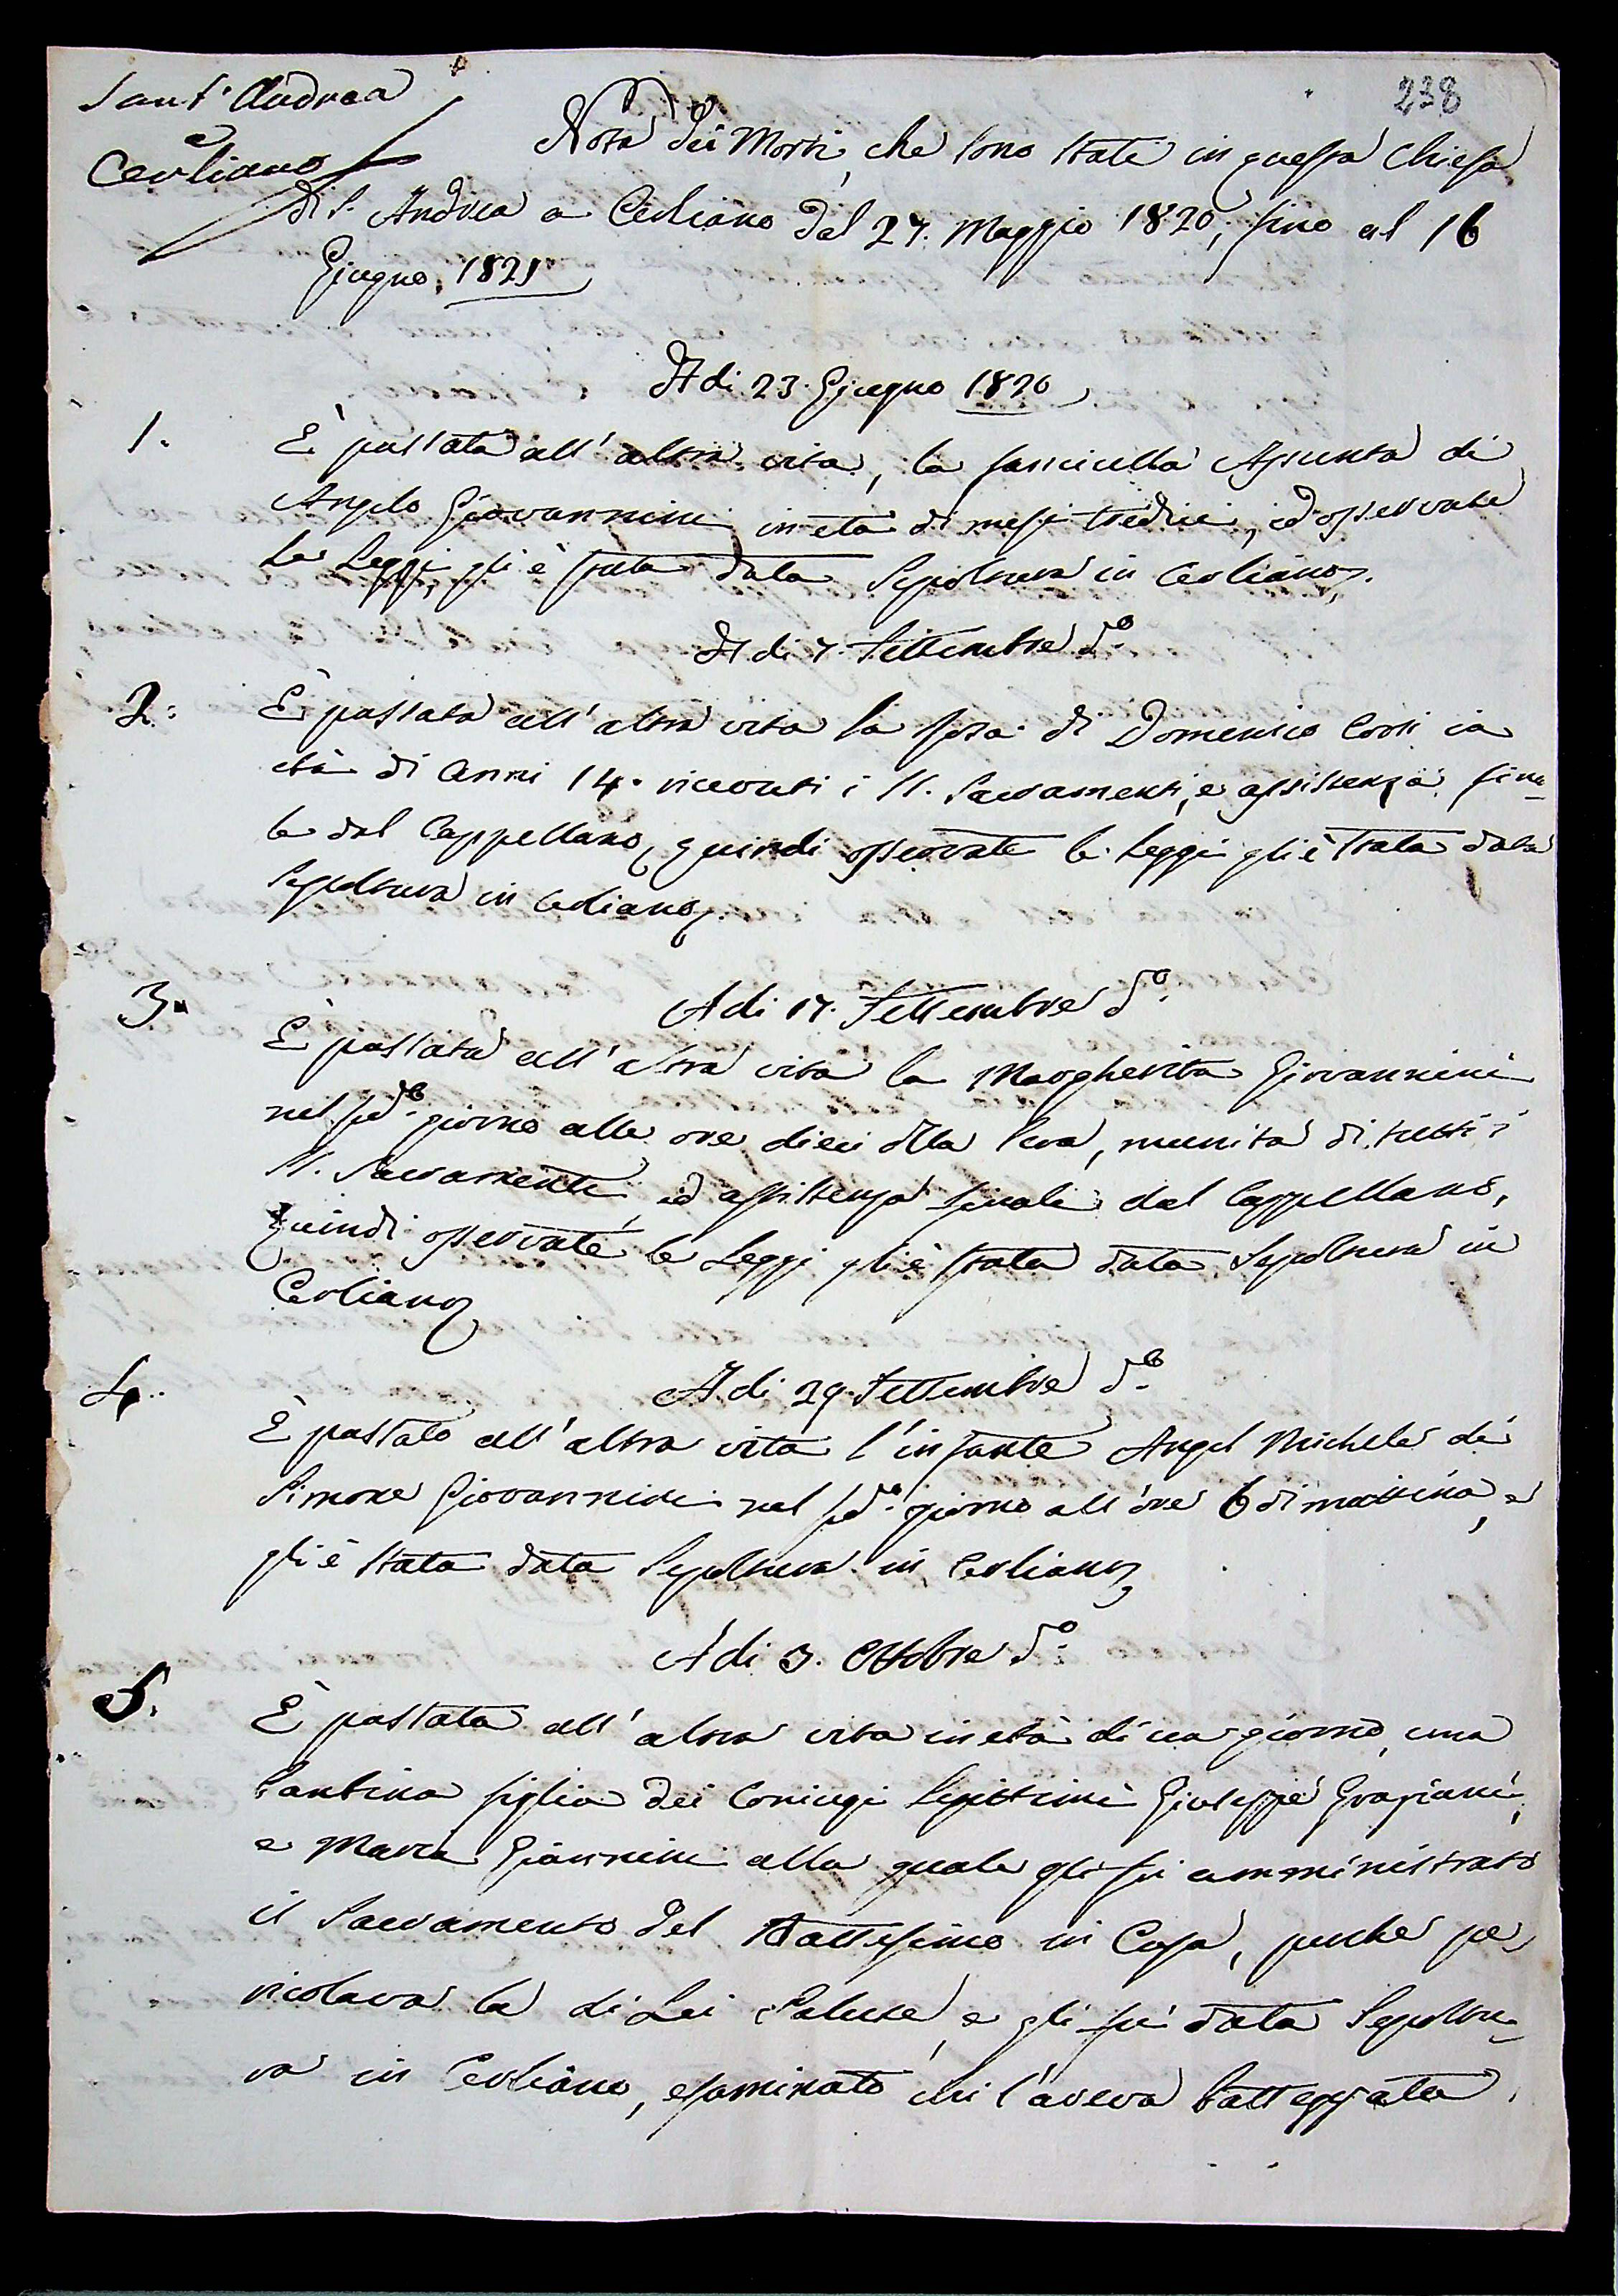 238
Sant' Andrea
a
Cerliano
Nota dei Morti, che sono stati in questa Chiesa
di S. Andrea a Cerliano dal 27. Maggio 1820, fino al 16
Giugno, 1821
A di 23. Giugno 1820
1. È passata all' altra vita, la fanciulla Assunta di
Angelo Giovannini in età di mesi tredici, ed osservate
le Leggi, gli è stata data Sepoltura in Cerliano.
A di 7. Settembre do.
2. È passata all' altra vita la Rosa di Domenico Corsi in
età di Anni 14. ricevuti i SS. Sacramenti, e assistenza fina-
le dal Cappellano, quindi osservate le Leggi gli è stata data
Sepoltura in Cerliano.
3. A di 17. Settembre do.
È passata all' altra vita la Margherita Giovannini
nel sudo. giorno alle ore dieci della sera, munita di tutti i
SS. Sacramenti, ed assistenza finale dal Cappellano,
quindi osservate le Leggi gli è stata data Sepoltura in
Cerliano
4. A di 29. Settembre do.
È passato all' altra vita l'infante Angel Michele di
Simone Giovannini nel sudo. giorno all'ore 6 di mattina, e
gli è stata data Sepoltura in Cerliano
A di 3. Ottobre do.
5. È passata all' altra vita in età di un giorno, una
Bambina figlia dei Coniugi legittimi Giuseppe Graziani,
e Maria Giannini alla quale gli fù amministrato
il Sacramento del Battesimo in Casa, perche pe-
ricolava la di Lei Salute, e gli fù data Sepoltu-
ra in Cerliano, esaminato chi l'aveva battezzata.